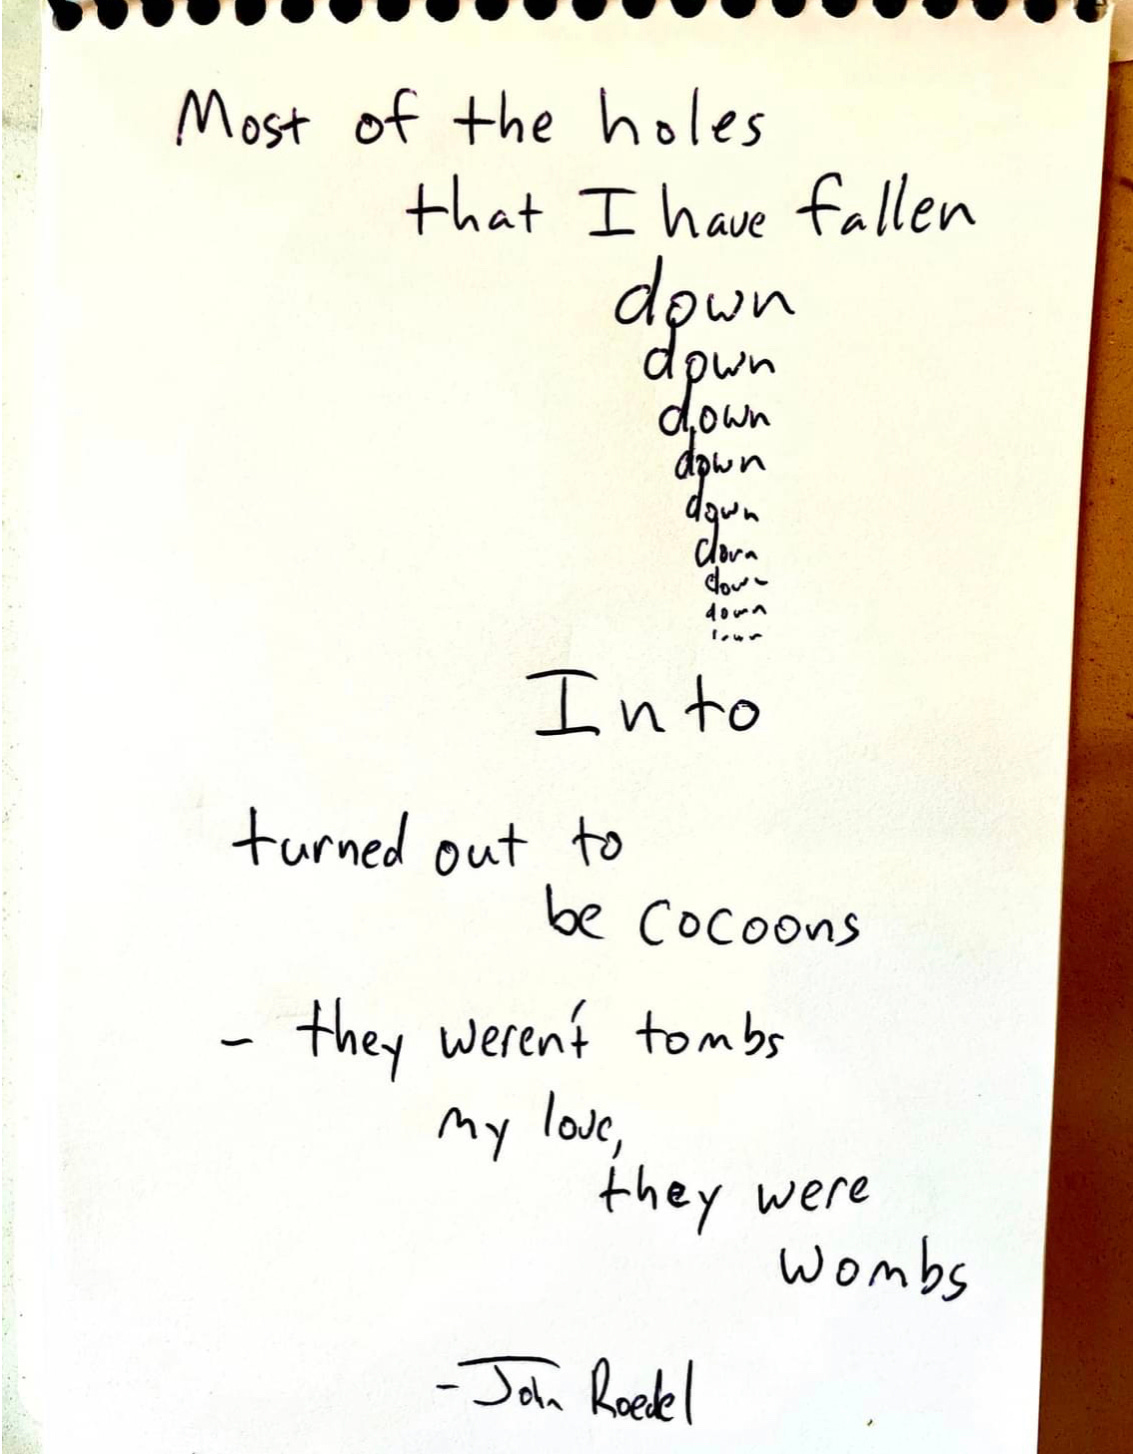 Most of the holes
that I have fallen
down
down
down
down
down
down
down
down
down
Into
turned out to
be cocoons
- they weren't tombs
my love,
they were
wombs
- John Roedel